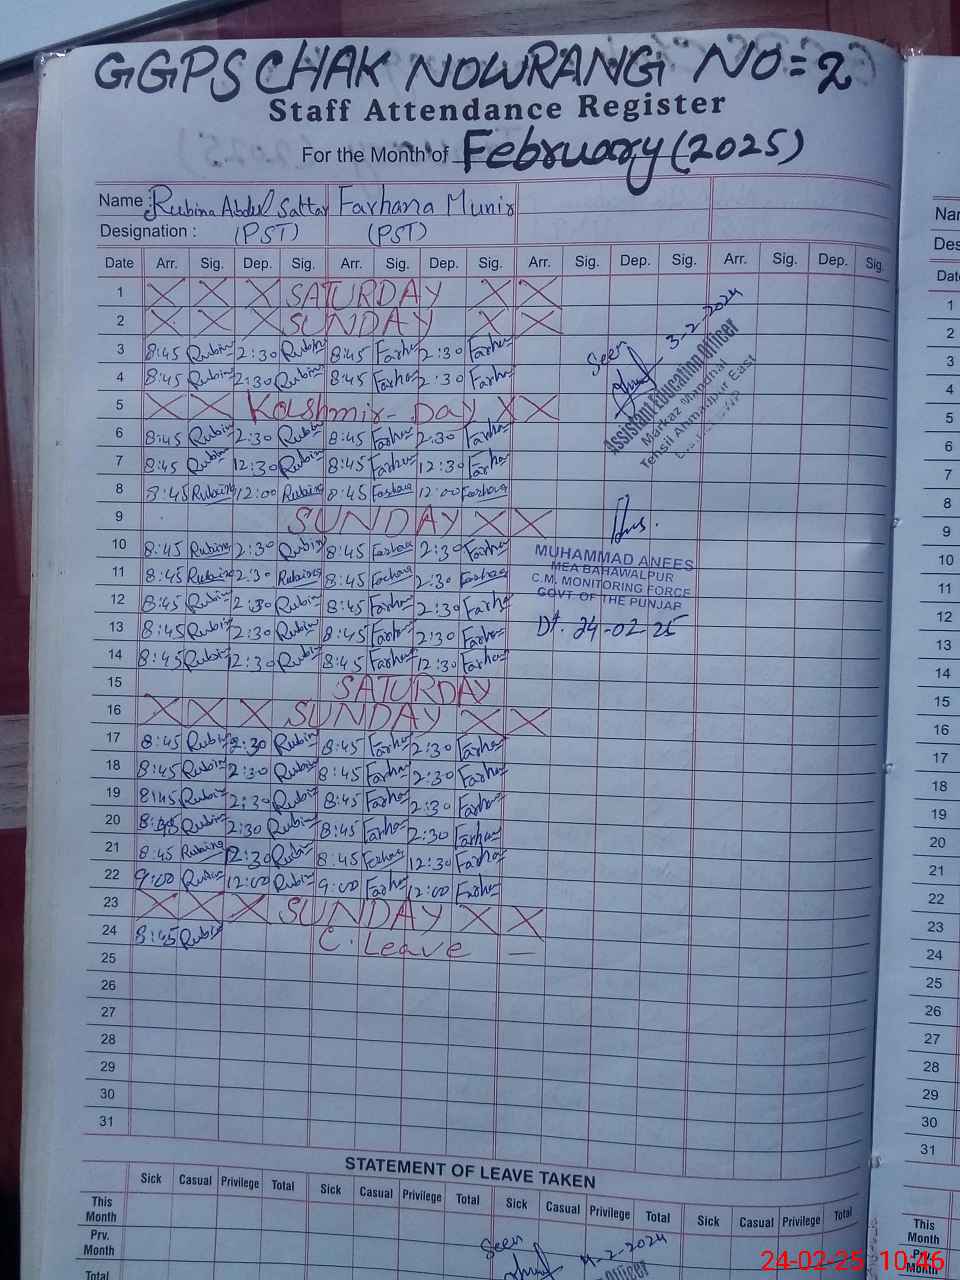 GGPS CHAK NOWRANG NO=2
Staff Attendance Register
For the Month of February (2025)
Name : Rubina Abdul Sattar Farhana Munir
Designation : (PST) (PST)
Date Arr. Sig. Dep. Sig. Arr. Sig. Dep. Sig. Arr. Sig. Dep. Sig. Arr. Sig. Dep. Sig.
1 X X X SATURDAY X X
2 X X X SUNDAY X X
3 8:45 Rubin 2:30 Rubin 8:45 Farha 2:30 Farha
4 8:45 Rubin 2:30 Rubin 8:45 Farha 2:30 Farha
5 X X Kashmir-Day X X
6 8:45 Rubin 2:30 Rubin 8:45 Farha 2:30 Farha
7 8:45 Rubin 12:30 Rubin 8:45 Farha 12:30 Farha
8 8:45 Rubina 12:00 Rubina 8:45 Farhana 12:00 Farhana
9 SUNDAY X X
10 8:45 Rubina 2:30 Rubin 8:45 Farhana 2:30 Farha
11 8:45 Rubina 2:30 Rubina 8:45 Farhana 2:30 Farhana
12 8:45 Rubin 2:30 Rubin 8:45 Farha 2:30 Farha
13 8:45 Rubin 2:30 Rubin 8:45 Farha 2:30 Farha
14 8:45 Rubin 12:30 Rubin 8:45 Farha 12:30 Farha
15 SATURDAY
16 X X X SUNDAY X X
17 8:45 Rubin 2:30 Rubin 8:45 Farha 2:30 Farha
18 8:45 Rubin 2:30 Rubin 8:45 Farha 2:30 Farha
19 8:45 Rubin 2:30 Rubin 8:45 Farha 2:30 Farha
20 8:45 Rubin 2:30 Rubin 8:45 Farha 2:30 Farha
21 8:45 Rubina 12:30 Rubi 8:45 Farhan 12:30 Farha
22 9:00 Rubin 12:00 Rubin 9:00 Farha 12:00 Farha
23 X X X SUNDAY X X
24 8:45 Rubin C. Leave —
25
26
27
28
29
30
31
Seen
3-2-2024
Assistant Education Officer
Tehsil Ahmadpur East
MUHAMMAD ANEES
MEA BAHAWALPUR
C.M. MONITORING FORCE
GOVT OF THE PUNJAB
Dt. 24-02-25
STATEMENT OF LEAVE TAKEN
Sick Casual Privilege Total Sick Casual Privilege Total Sick Casual Privilege Total Sick Casual Privilege Total
This Month
Prv. Month
Total
Seen
4-2-2024
Officer
Nar
Des
Date
1
2
3
4
5
6
7
8
9
10
11
12
13
14
15
16
17
18
19
20
21
22
23
24
25
26
27
28
29
30
31
This
Month
Prv.
Month
24-02-25 10:46